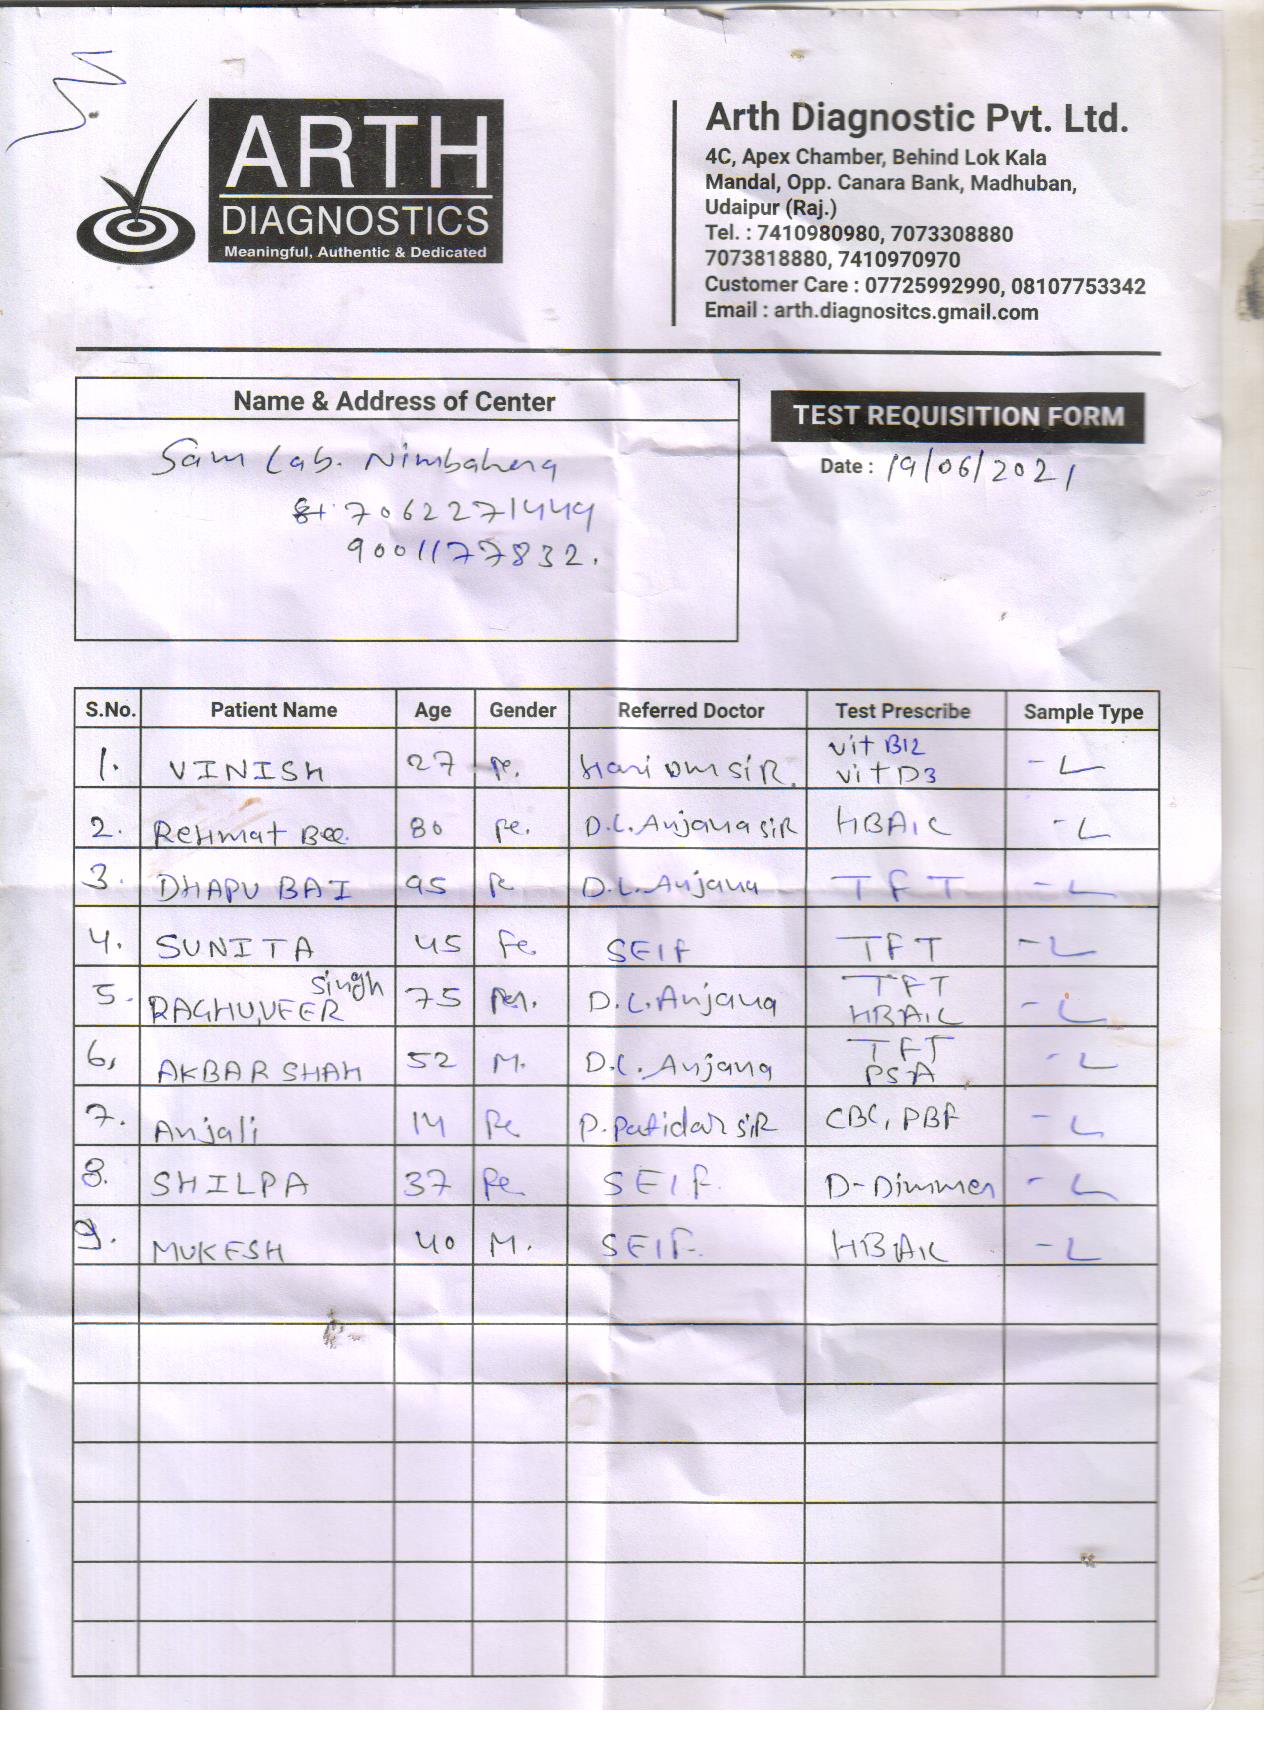 ARTH
DIAGNOSTICS
Meaningful, Authentic & Dedicated
Arth Diagnostic Pvt. Ltd.
4C, Apex Chamber, Behind Lok Kala
Mandal, Opp. Canara Bank, Madhuban,
Udaipur (Raj.)
Tel. : 7410980980, 7073308880
7073818880, 7410970970
Customer Care : 07725992990, 08107753342
Email : arth.diagnositcs.gmail.com
Name & Address of Center
Sam Lab. Nimbahera
7062271449
9001177832.
TEST REQUISITION FORM
Date : 19/06/2021
S.No. Patient Name Age Gender Referred Doctor Test Prescribe Sample Type
1. VINISH 27 Hari om SiR. Vit B12
Vit D3 - L
2. Rehmat Bee. 80 Fe. D.L. Anjana SiR HBA1C - L
3. DHAPU BAI 95 Fe D.L. Anjana TFT - L
4. SUNITA 45 Fe. SElF TFT - L
5. RAGHUVEER Singh 75 D.L. Anjana TFT
HBA1C - L
6, AKBAR SHAH 52 M. D.L. Anjana TFT
PSA - L
7. Anjali 14 Fe P. Patidar SiR CBC, PBF - L
8. SHILPA 37 Fe SElF. D-Dimmer - L
9. MUKESH 40 M. SElF. HBA1C - L